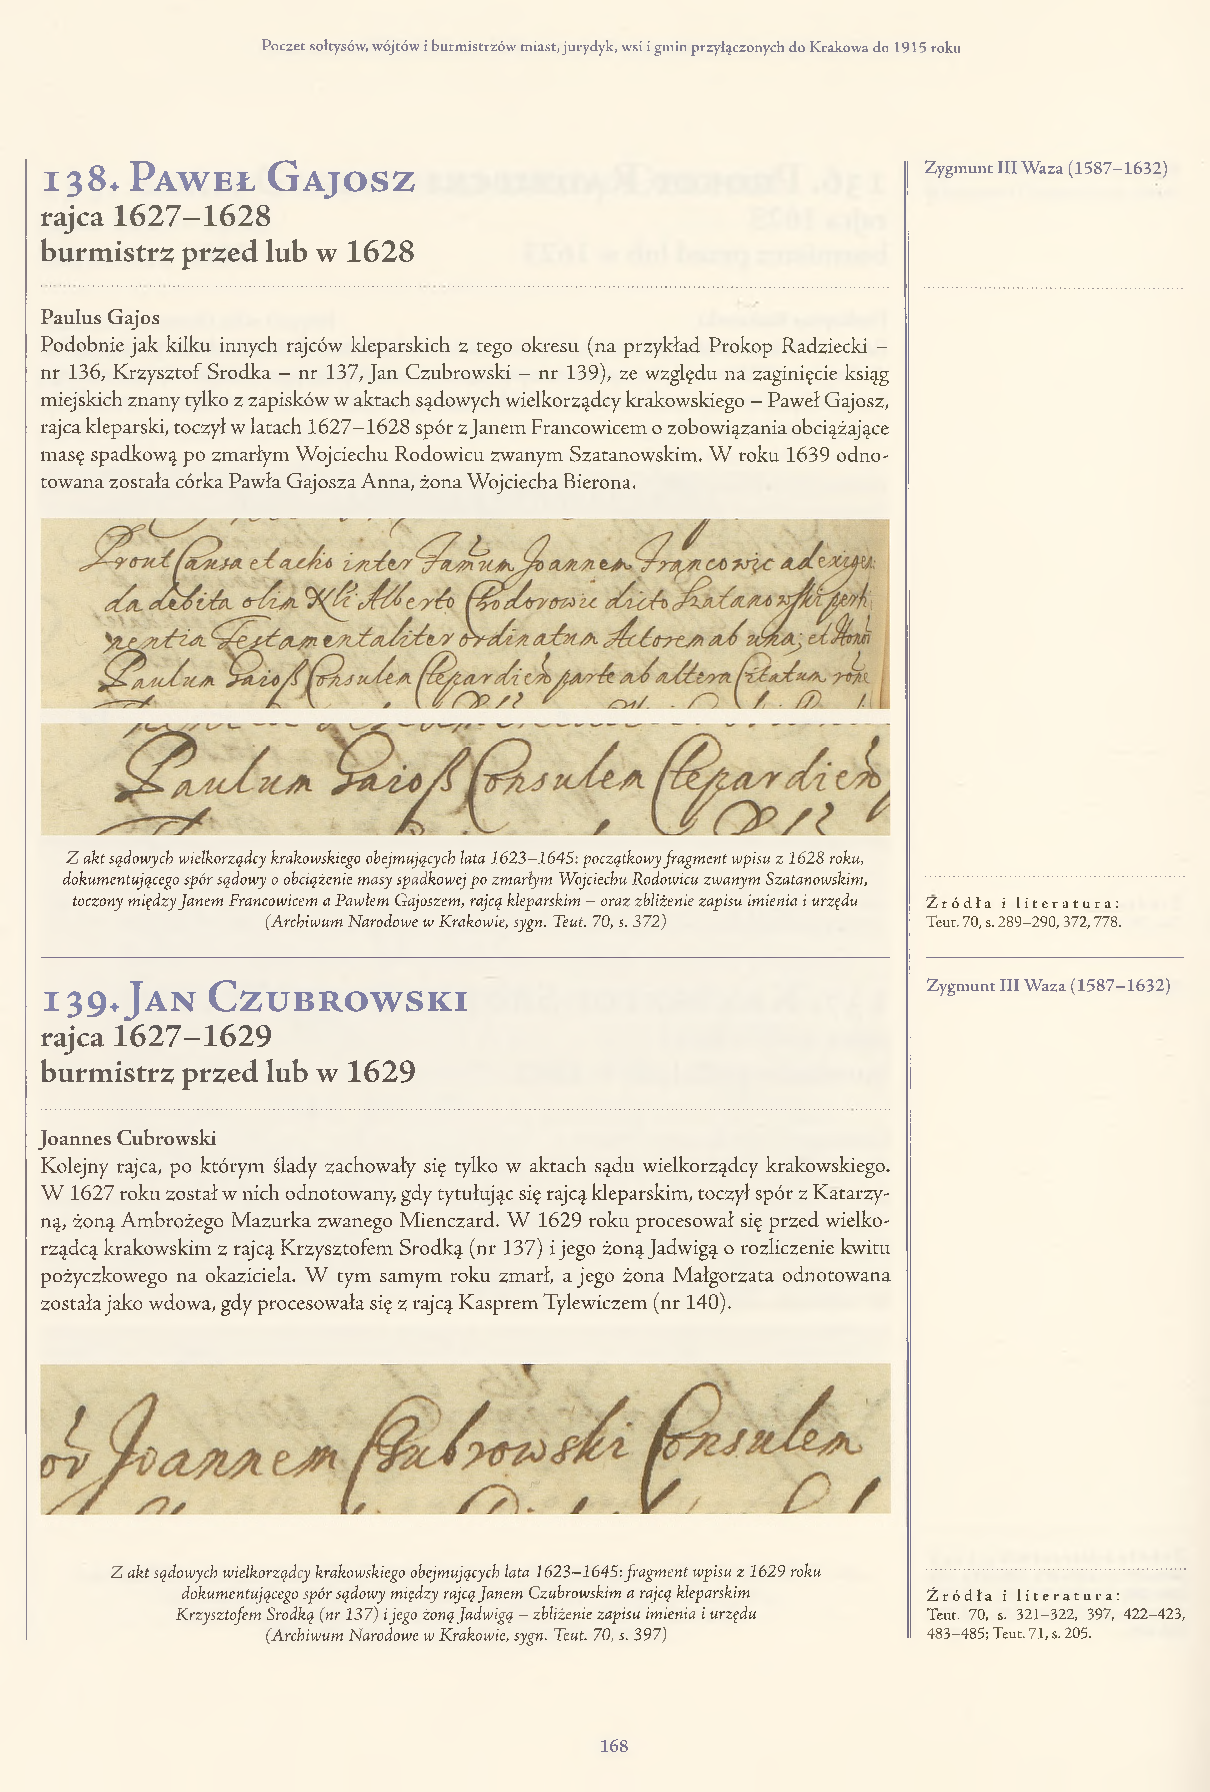 Poczet sołtysów, wójtów i burmistrzów miast, jurydyk, wsi i gmin przyłączonych do Krakowa do 1915 roku
138. Paweł Gajosz
rajca 1627–1628
burmistrz przed lub w 1628
Zygmunt III Waza (1587–1632)
Paulus Gajos
Podobnie jak kilku innych rajców kleparskich z tego okresu (na przykład Prokop Radziecki –
nr 136, Krzysztof Srodka – nr 137, Jan Czubrowski – nr 139), ze względu na zaginięcie ksiąg
miejskich znany tylko z zapisków w aktach sądowych wielkorządcy krakowskiego – Paweł Gajosz,
rajca kleparski, toczył w latach 1627–1628 spór z Janem Francowicem o zobowiązania obciążające
masę spadkową po zmarłym Wojciechu Rodowicu zwanym Szatanowskim. W roku 1639 odno-
towana została córka Pawła Gajosza Anna, żona Wojciecha Bierona.
Prout Causa et actio inter Famatum Joannem Francowic ad exigen
da debita olim Alberto Chodorowic dicto Szatanowski
Testamentaliter ordinatum Actorem ab una; et
Paulum Gaioß Consulem Clepardien parte ab altera Citatum
Paulum Gaioß Consulem Clepardien
Z akt sądowych wielkorządcy krakowskiego obejmujących lata 1623–1645: początkowy fragment wpisu z 1628 roku,
dokumentującego spór sądowy o obciążenie masy spadkowej po zmarłym Wojciechu Rodowicu zwanym Szatanowskim,
toczony między Janem Francowicem a Pawłem Gajoszem, rajcą kleparskim – oraz zbliżenie zapisu imienia i urzędu
(Archiwum Narodowe w Krakowie, sygn. Teut. 70, s. 372)
Źródła i literatura:
Teut. 70, s. 289–290, 372, 778.
139. Jan Czubrowski
rajca 1627–1629
burmistrz przed lub w 1629
Zygmunt III Waza (1587–1632)
Joannes Cubrowski
Kolejny rajca, po którym ślady zachowały się tylko w aktach sądu wielkorządcy krakowskiego.
W 1627 roku został w nich odnotowany, gdy tytułując się rajcą kleparskim, toczył spór z Katarzy-
ną, żoną Ambrożego Mazurka zwanego Mienczard. W 1629 roku procesował się przed wielko-
rządcą krakowskim z rajcą Krzysztofem Srodką (nr 137) i jego żoną Jadwigą o rozliczenie kwitu
pożyczkowego na okaziciela. W tym samym roku zmarł, a jego żona Małgorzata odnotowana
została jako wdowa, gdy procesowała się z rajcą Kasprem Tylewiczem (nr 140).
Joannem Czubrowski Consulem
Z akt sądowych wielkorządcy krakowskiego obejmujących lata 1623–1645: fragment wpisu z 1629 roku
dokumentującego spór sądowy między rajcą Janem Czubrowskim a rajcą kleparskim
Krzysztofem Srodką (nr 137) i jego żoną Jadwigą – zbliżenie zapisu imienia i urzędu
(Archiwum Narodowe w Krakowie, sygn. Teut. 70, s. 397)
Źródła i literatura:
Teut. 70, s. 321–322, 397, 422–423,
483–485; Teut. 71, s. 205.
168